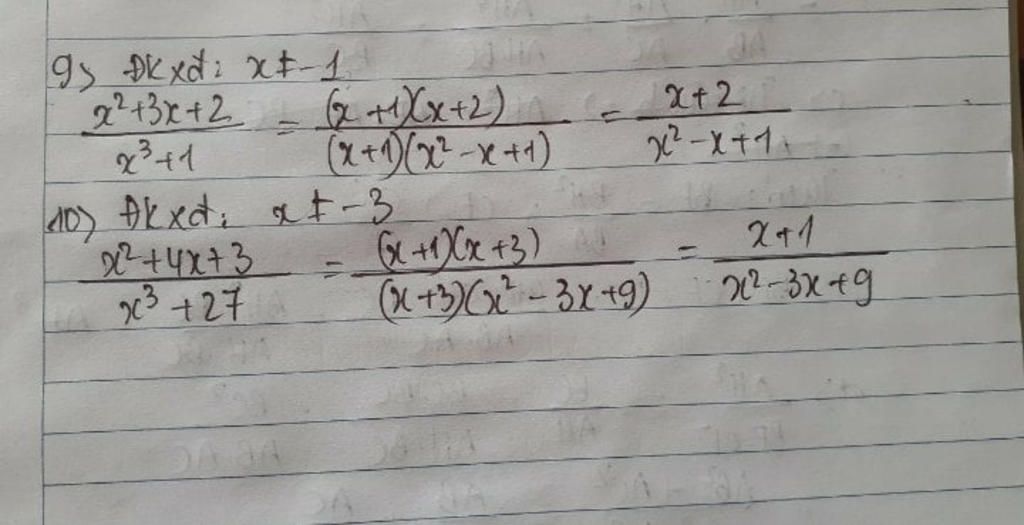 9) ĐKXĐ: x ≠ -1
(x²+3x+2)/(x³+1) = ((x+1)(x+2))/((x+1)(x²-x+1)) = (x+2)/(x²-x+1)
10) ĐKXĐ: x ≠ -3
(x²+4x+3)/(x³+27) = ((x+1)(x+3))/((x+3)(x²-3x+9)) = (x+1)/(x²-3x+9)